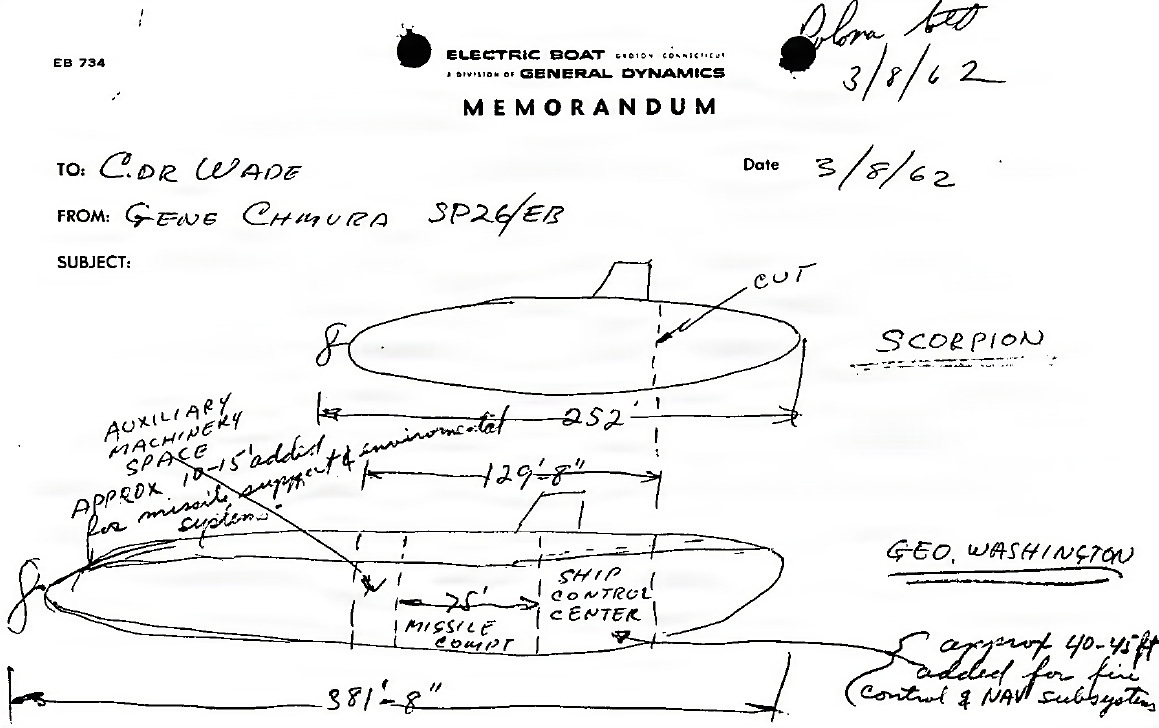 EB 734
ELECTRIC BOAT GROTON, CONNECTICUT
A DIVISION OF GENERAL DYNAMICS
MEMORANDUM
3/8/62
TO: C.DR WADE
Date 3/8/62
FROM: GENE CHMURA SP26/EB
SUBJECT:
CUT
SCORPION
252'
AUXILIARY
MACHINERY
SPACE
APPROX 10-15' added
for missile support & enviromental
systems.
129'-8"
GEO. WASHINGTON
SHIP
CONTROL
CENTER
75'
MISSILE
COMPT
approx 40-45 ft
added for fire
control & NAV subsystems
381'-8"